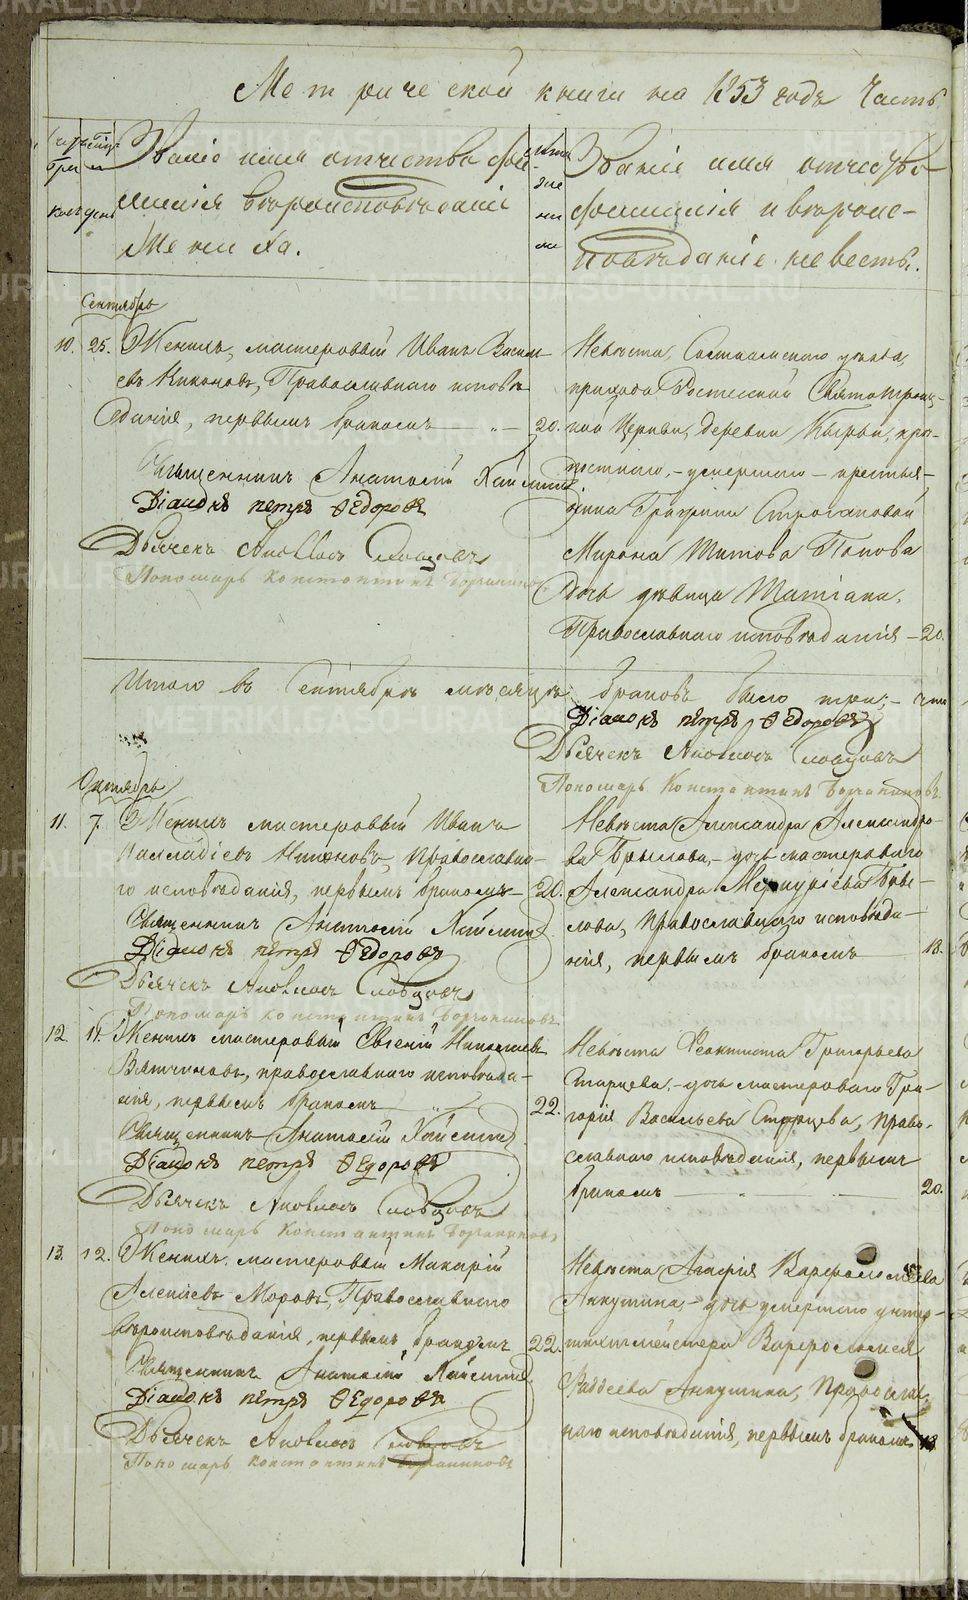 Метрической книги на 1853 годъ Часть
Званіе имя отчество фа-
милія вѣроисповѣданіе
Жениха.
лѣта
Званіе имя отчество
фамилія и вѣроис-
повѣданіе невесты.
Сентябрь
10. 25. Женихъ, мастеровый Иванъ Васильевъ
Никоновъ, Православнаго исповѣ-
данія, первымъ бракомъ — 20.
Священникъ Анатолій
Діаконъ петръ Ѳедоровъ
Дьячекъ Аполлосъ Словцовъ
Пономарь Константинъ
Невѣста, Соликамскаго уѣзда,
прихода Ростесской Святотроиц-
кой Церкви, деревни Кырьи, крѣ-
постнаго, - умершаго - крестья-
нина Графини Строгановой
Мирона Титова Попова
дочь девица Татіана,
Православнаго исповѣданія — 20.
Итого въ Сентябрѣ месяцѣ браковъ было три, -
Діаконъ петръ Ѳедоровъ
Дьячекъ Аполлосъ Словцовъ
Пономарь Константинъ
Октябрь
11. 7. Женихъ мастеровый Иванъ
Палладіевъ Никоновъ, Православна-
го исповѣданія, первымъ бракомъ — 20.
Священникъ Анатолій
Діаконъ петръ Ѳедоровъ
Дьячекъ Аполлосъ Словцовъ
Пономарь Константинъ
Невѣста Александра Александро-
ва Брылова, - дочь мастероваго
Александра Меркуріева Бры-
лова, Православнаго исповѣда-
нія, первымъ бракомъ — 18.
12. 11. Женихъ мастеровый Евгеній Николаевъ
Вятчиновъ, православнаго исповѣда-
нія, первымъ бракомъ 22.
Священникъ Анатолій
Діаконъ петръ Ѳедоровъ
Дьячекъ Аполлосъ Словцовъ
Пономарь Константинъ
Невѣста Феоктиста Григорьева
Старцева, - дочь мастероваго Гри-
горія Васильева Старцева, Право-
славнаго исповѣданія, первымъ
бракомъ — 20.
13. 12. Женихъ, мастеровый Макарій
Алексіевъ Моровъ, Православнаго
вѣроисповѣданія, первымъ бракомъ 22.
Священникъ Анатолій
Діаконъ петръ Ѳедоровъ
Дьячекъ Аполлосъ Словцовъ
Пономарь Константинъ
Невѣста Агафія Варфоломеева
Анкушина, - дочь умершаго унтер-
шихтмейстера Варфоломея
Фаддеева Анкушина, Православ-
наго исповѣданія, первымъ бракомъ 18
METRIKI.GASO-URAL.RU